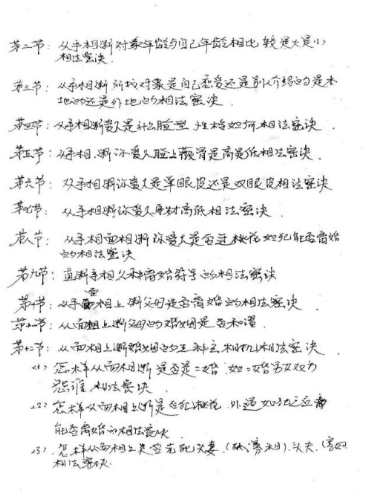 第二节：从手相断对象年龄与自己年龄相比较是大是小
相法密诀
第三节：从手相断所找对象是自己恋爱还是别人介绍的是本
地的还是外地的相法密诀
第四节：从手相断爱人是什么脸型 性格如何相法密诀.
第五节：从手相.断你爱人脸上颧骨是高是低相法密诀.
第六节：从手相断你爱人是单眼皮还是双眼皮相法密诀
第七节：从手相断你爱人身材高低相法密诀.
第八节：从手相面相断你爱人是否进桃花如犯能否离婚
的相法密诀
第九节：直断手相父母离婚符号的相法密诀
第十节：从手面相上断父母是否离婚的相法密诀.
从面相上断父母的婚姻是否和谐.
第十二节：从面相上断婚姻的相法密诀.
<1> 怎样从面相断是否是二婚. 如二婚男女双方
是谁 相法密诀.
<2> 怎样从面相上断是否犯桃花. 外遇如犯
能否离婚的相法密诀.
<3>. 怎样从面相上是否克夫妻.
相法密诀.